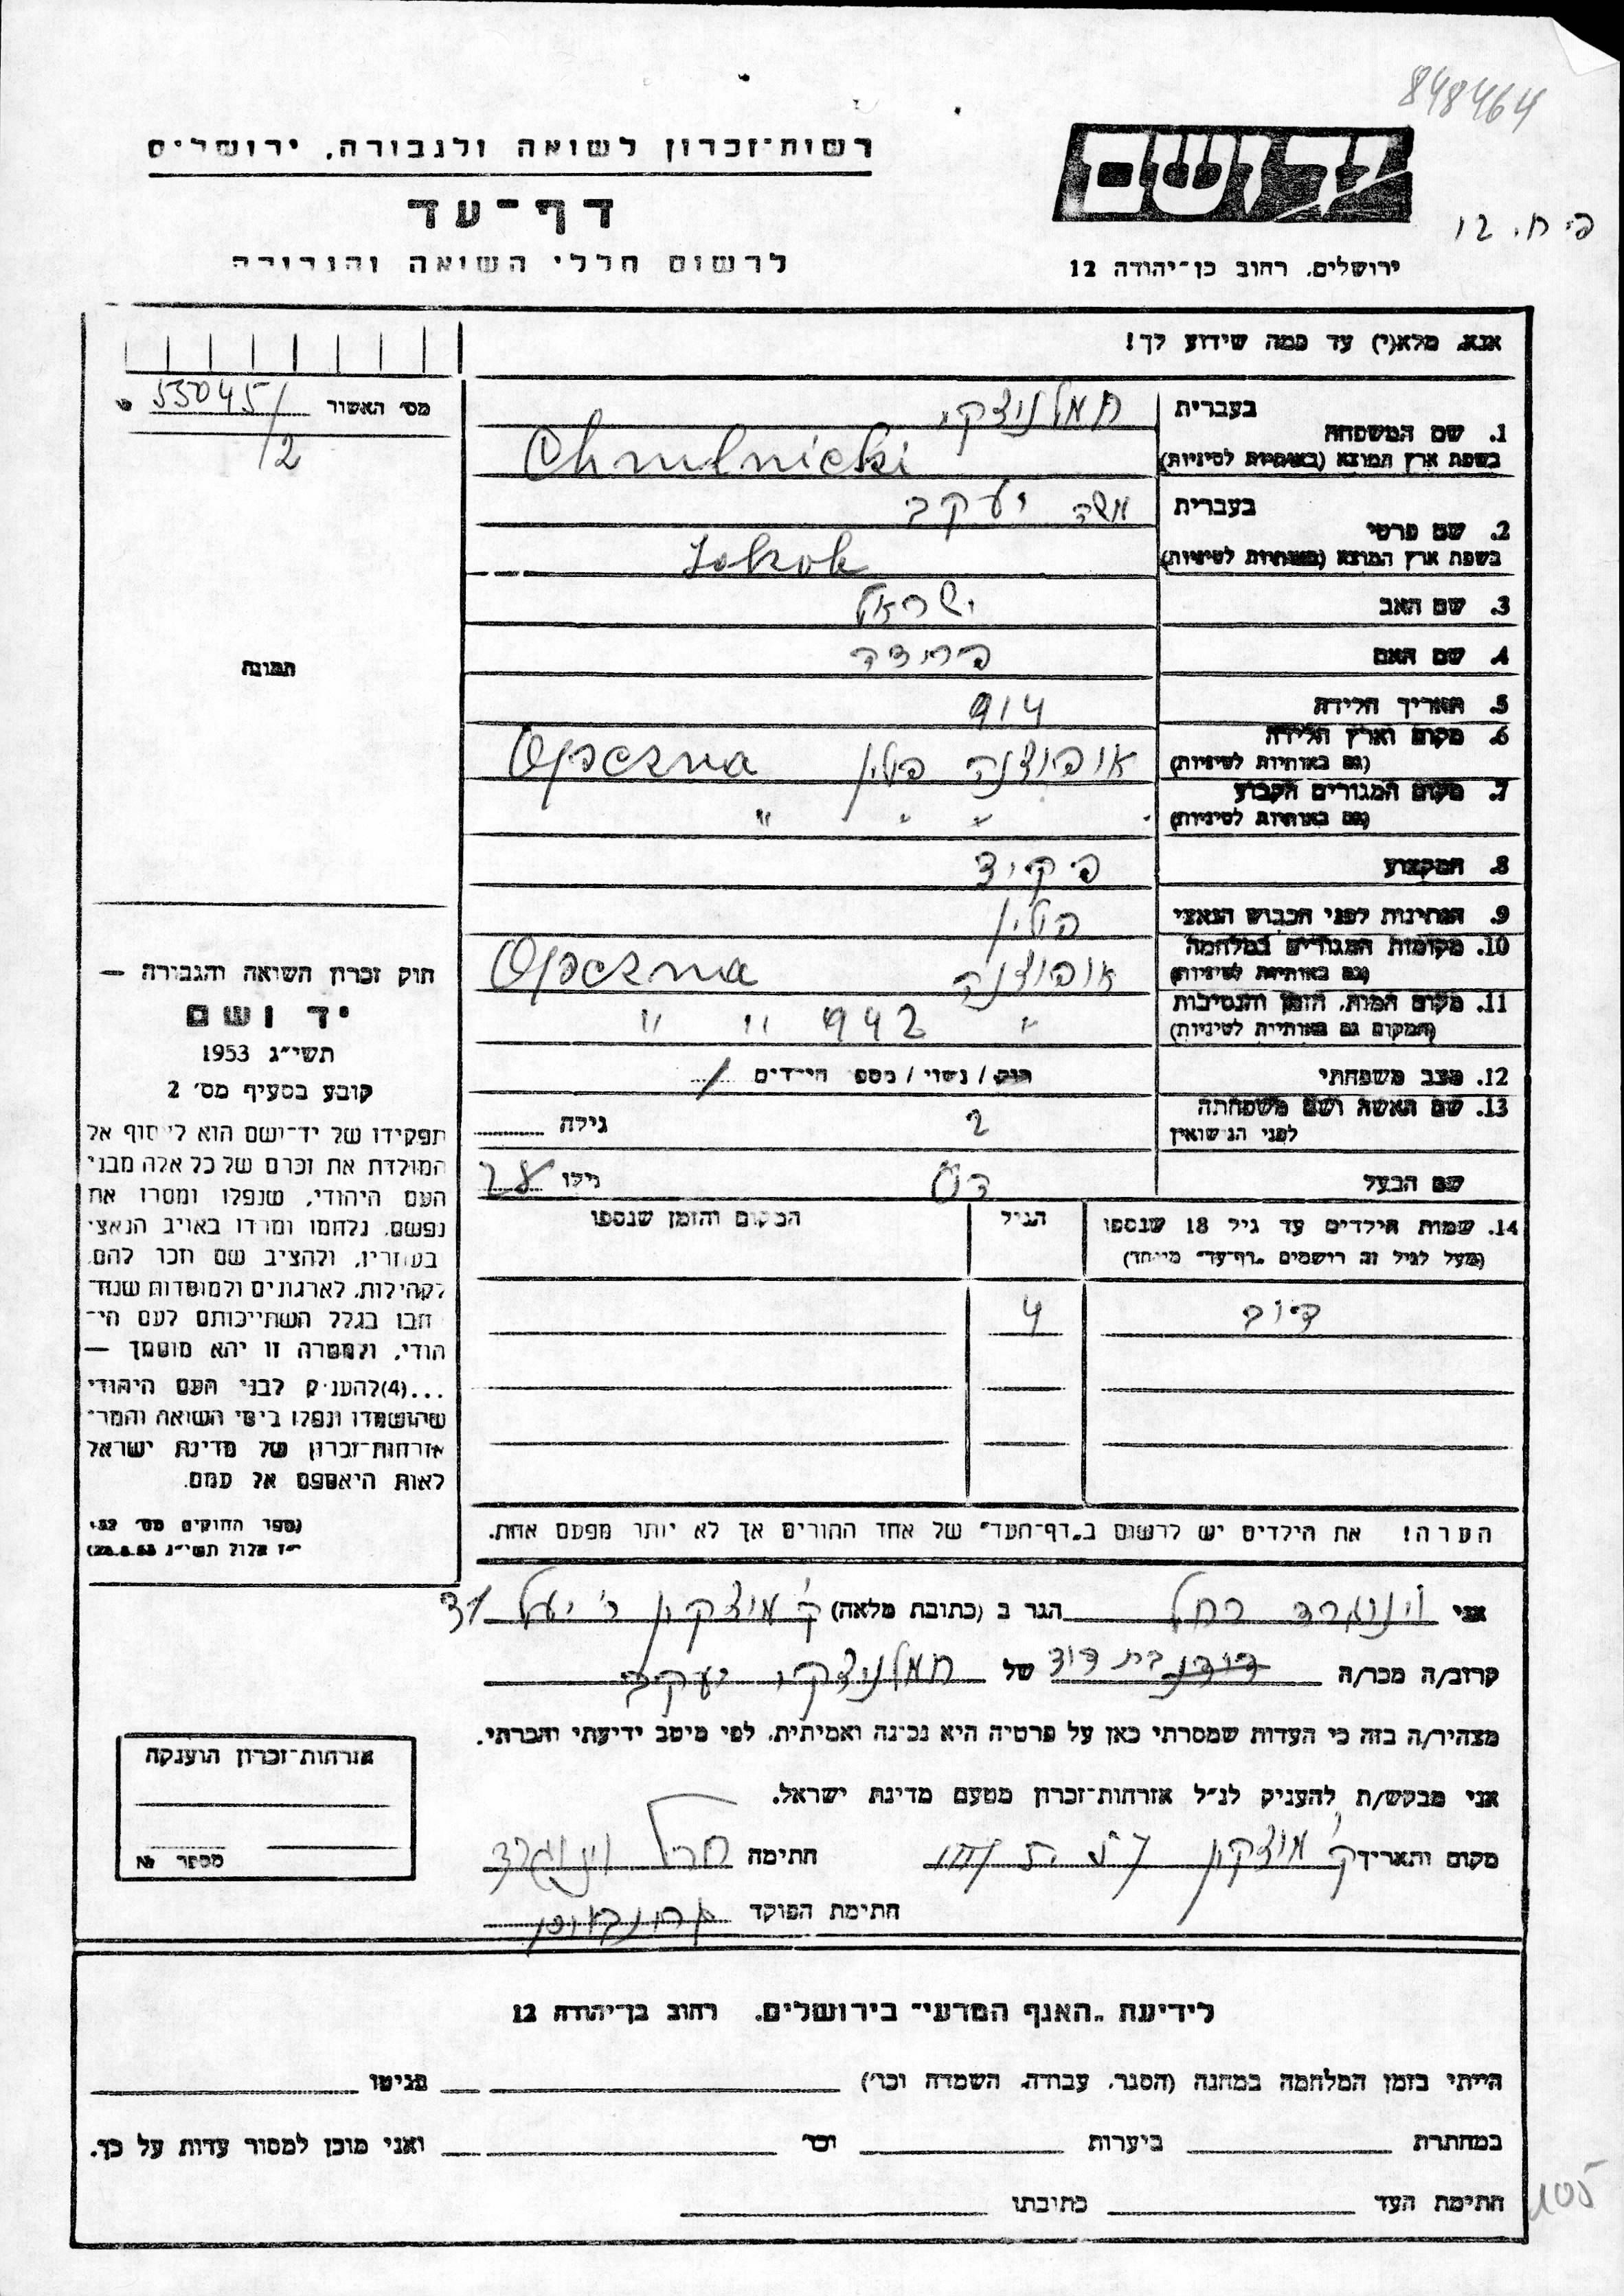 848464
רשות־זכרון לשואה ולגבורה, ירושלים
יד ושם
דף־עד
פ. ח. 12
לרשום חללי השואה והגבורה
ירושלים, רחוב בן־יהודה 12
אנא, מלא(י) עד כמה שידוע לך!
מס׳ האשור 53045/
/2
1. שם המשפחה
בעברית חמלניצקי
בשפת ארץ המוצא (באותיות לטיניות) Chmelnicki
2. שם פרטי
בעברית משה יעקב
בשפת ארץ המוצא (באותיות לטיניות) Jakob
3. שם האב ישראל
4. שם האם
תמונה
5. תאריך הלידה 914
6. מקום וארץ הלידה
(גם באותיות לטיניות) אופוצנה פולין Opoczna
7. מקום המגורים הקבוע
(גם באותיות לטיניות) " " "
8. המקצוע פקיד
9. הנתינות לפני הכבוש הנאצי פולין
10. מקומות המגורים במלחמה
(גם באותיות לטיניות) אופוצנה Opoczna
11. מקום המות, הזמן והנסיבות
(המקום גם באותיות לטיניות) " 942 " "
12. מצב משפחתי רווק / נשוי / מספר הילדים /
13. שם האשה ושם משפחתה
לפני הנישואין גילה
שם הבעל גילו 28
14. שמות הילדים עד גיל 18 שנספו
(מעל לגיל זה רושמים "דף־עד" מיוחד)
הגיל
המקום והזמן שנספו
דוב 4
חוק זכרון השואה והגבורה —
יד ושם
תשי״ג 1953
קובע בסעיף מס׳ 2
תפקידו של יד־ושם הוא לאסוף אל
המולדת את זכרם של כל אלה מבני
העם היהודי, שנפלו ומסרו את
נפשם, נלחמו ומרדו באויב הנאצי
בעוזריו, ולהציב שם וזכר להם,
לקהילות, לארגונים ולמוסדות שנח־
רבו בגלל השתייכותם לעם הי־
הודי, ולמטרה זו יהא מוסמך —
...(4)להעניק לבני העם היהודי
שהושמדו ונפלו בימי השואה והמרי
אזרחות־זכרון של מדינת ישראל
לאות היאספם אל עמם.
(ספר החוקים מס׳ 132,
י״ז אלול תשי״ג 28.8.53)
הערה! את הילדים יש לרשום ב"דף־העד" של אחד ההורים אך לא יותר מפעם אחת.
אני וינגרד רחל הגר ב (כתובת מלאה) ק׳ מוצקין ר׳ יעל 31
קרוב/ה מכר/ה בת דוד של חמלניצקי יעקב
מצהיר/ה בזה כי העדות שמסרתי כאן על פרטיה היא נכונה ואמיתית, לפי מיטב ידיעתי והכרתי.
אני מבקש/ת להעניק לנ״ל אזרחות־זכרון מטעם מדינת ישראל.
מקום ותאריך ק׳ מוצקין
חתימה רחל וינגרד
חתימת הפוקד
אזרחות־זכרון הוענקה
מספר №
לידיעת "האגף המדעי" בירושלים, רחוב בן־יהודה 12
הייתי בזמן המלחמה במחנה (הסגר, עבודה, השמדה וכו׳) בגיטו
במחתרת ביערות וכו׳ ואני מוכן למסור עדות על כך.
חתימת העד כתובתו
105